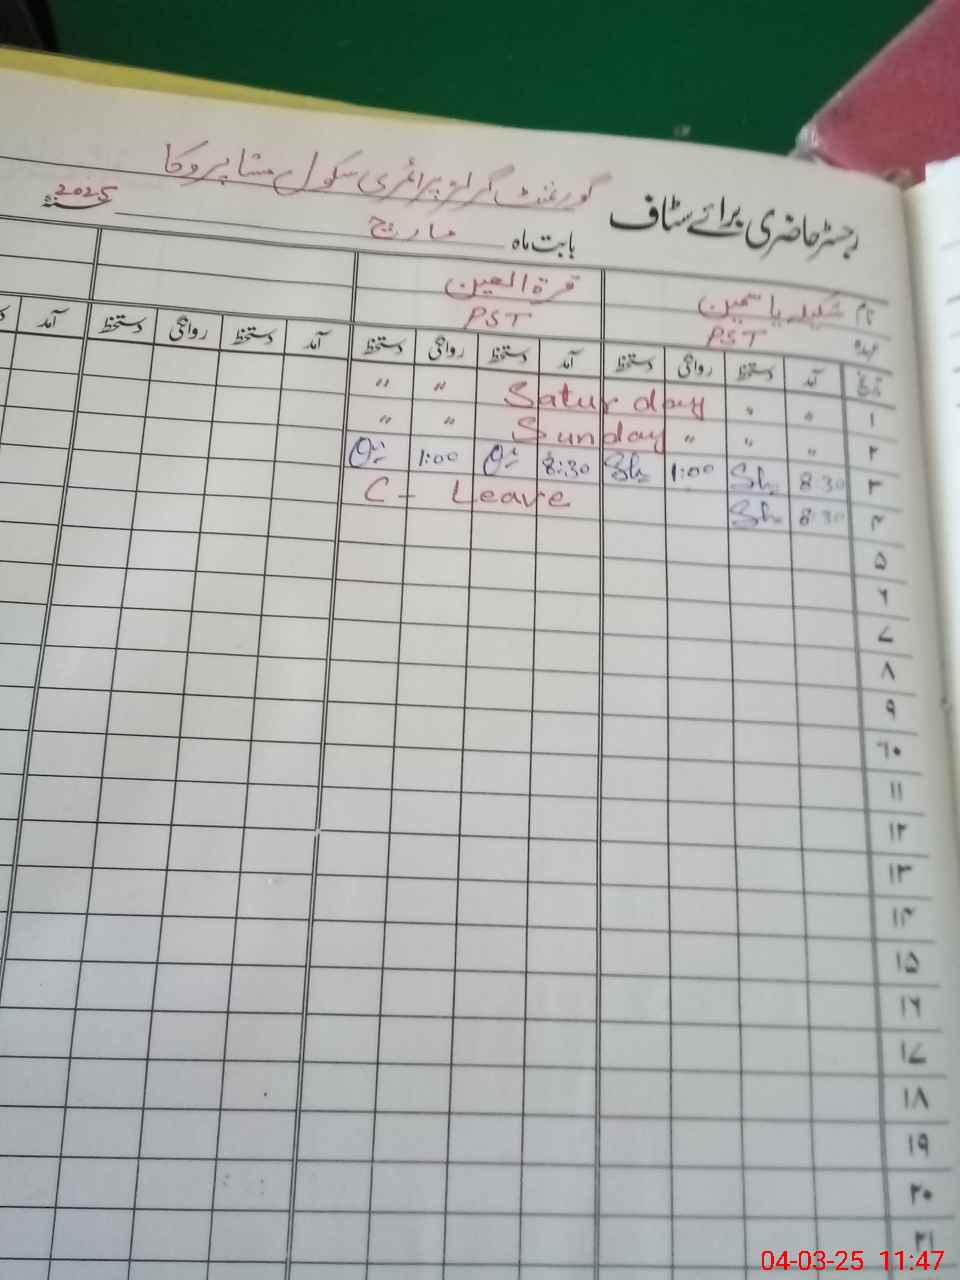 گورنمنٹ گرلز پرائمری سکول
رجسٹر حاضری برائے سٹاف
بابت ماہ مارچ 2025
نام شکیلہ یاسمین قرۃ العین
عہدہ PST PST
تاریخ آمد دستخط رواجی دستخط آمد دستخط رواجی دستخط آمد دستخط رواجی دستخط آمد
۱ " " Saturday " "
۲ " " " Sunday " "
۳ 8:30 Sh 1:00 Sh 8:30 1:00
۴ 8:30 Sh C - Leave
۵
۶
۷
۸
۹
۱۰
۱۱
۱۲
۱۳
۱۴
۱۵
۱۶
۱۷
۱۸
۱۹
۲۰
۲۱
04-03-25 11:47